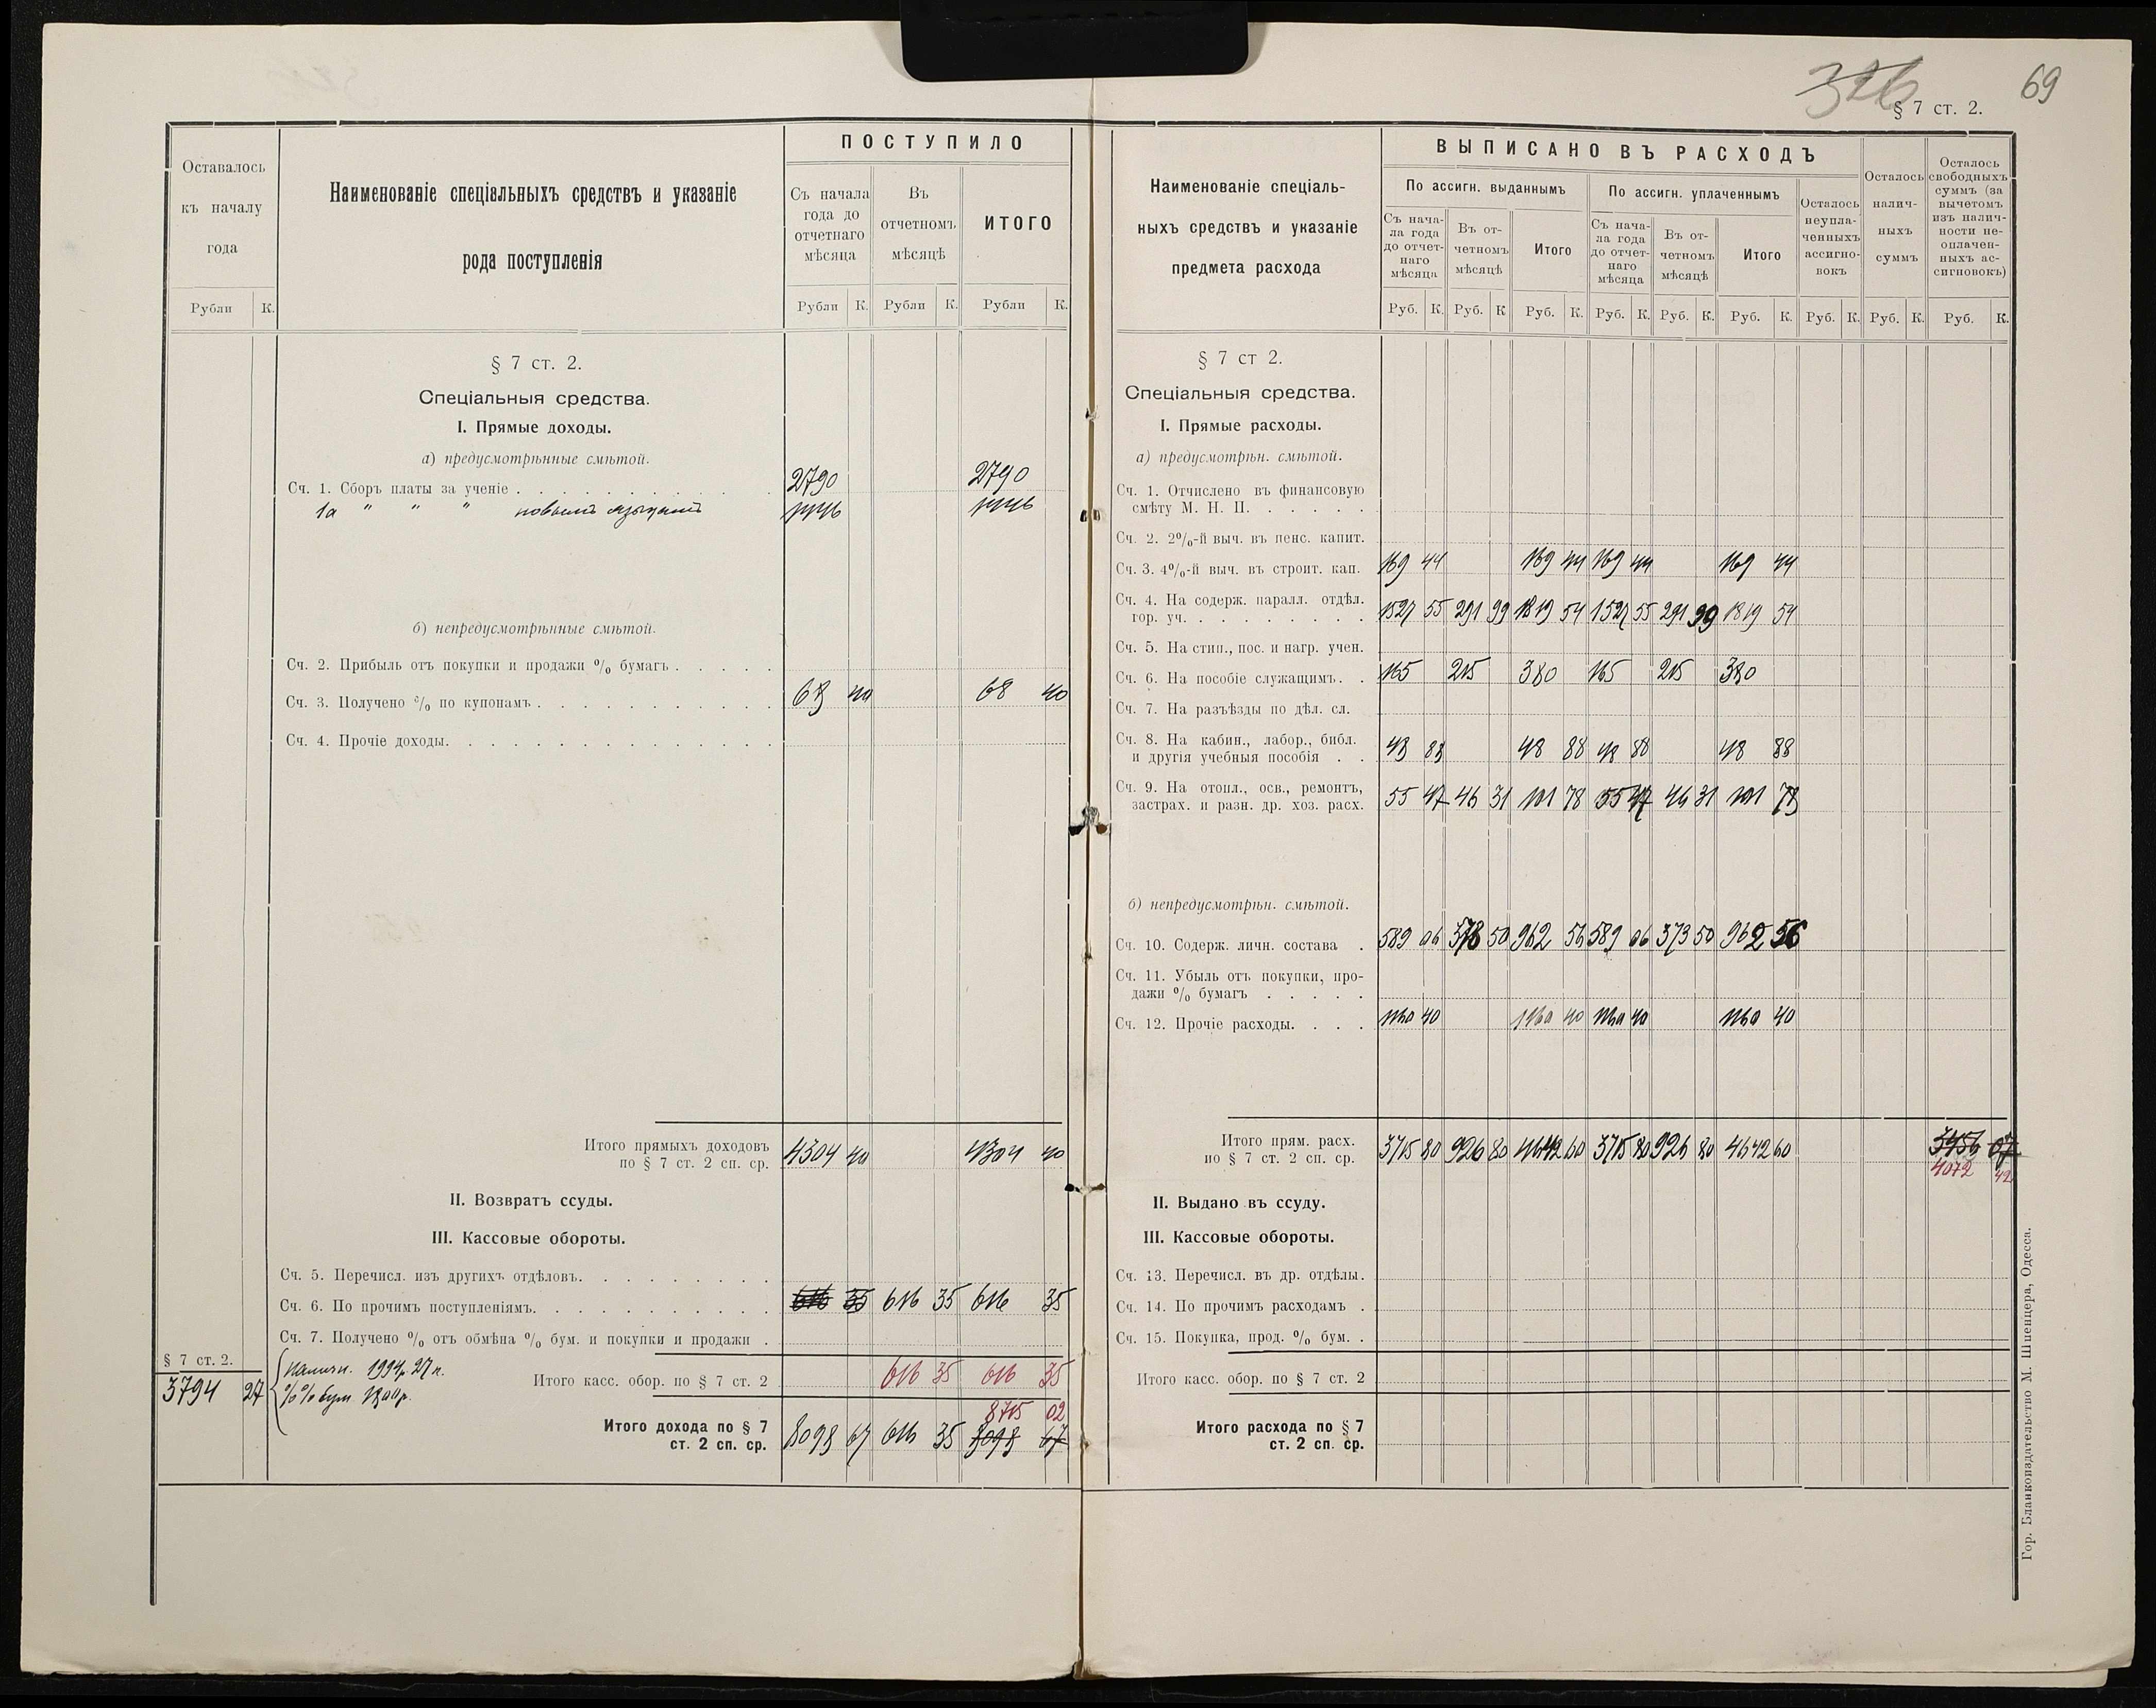 326
69
§ 7 ст. 2.
Оставалось
къ началу
года
Рубли К.
Наименованіе спеціальныхъ средствъ и указаніе
рода поступленія
ПОСТУПИЛО
Съ начала
года до
отчетнаго
мѣсяца
Въ
отчетномъ
мѣсяцѣ
ИТОГО
Рубли К. Рубли К. Рубли К.
§ 7 ст. 2.
Спеціальныя средства.
I. Прямые доходы.
а) предусмотрѣнные смѣтой.
2790 2790
Сч. 1. Сборъ платы за ученіе
1а " " " новымъ языкамъ 1446 1446
б) непредусмотрѣнные смѣтой.
Сч. 2. Прибыль отъ покупки и продажи % бумагъ
Сч. 3. Получено % по купонамъ 68 40 68 40
Сч. 4. Прочіе доходы.
Итого прямыхъ доходовъ
по § 7 ст. 2 сп. ср. 4304 40 4304 40
II. Возвратъ ссуды.
III. Кассовые обороты.
Сч. 5. Перечисл. изъ другихъ отдѣловъ.
Сч. 6. По прочимъ поступленіямъ. 616 35 616 35 616 35
Сч. 7. Получено % отъ обмѣна % бум. и покупки и продажи .
§ 7 ст. 2.
3794 27
наличн. 1994р. 27к.
%% бум. 1800р.
Итого касс. обор. по § 7 ст. 2 616 35 616 35
8715 02
Итого дохода по § 7
ст. 2 сп. ср. 8098 67 616 35 8098 67
Наименованіе спеціаль-
ныхъ средствъ и указаніе
предмета расхода
ВЫПИСАНО ВЪ РАСХОДЪ
По ассигн. выданнымъ
Съ нача-
ла года
до отчет-
наго
мѣсяца
Въ от-
четномъ
мѣсяцѣ
Итого
По ассигн. уплаченнымъ
Съ нача-
ла года
до отчет-
наго
мѣсяца
Въ от-
четномъ
мѣсяцѣ
Итого
Осталось
неупла-
ченныхъ
ассигно-
вокъ
Осталось
налич-
ныхъ
суммъ
Осталось
свободныхъ
суммъ (за
вычетомъ
изъ налич-
ности не-
оплачен-
ныхъ ас-
сигновокъ)
Руб. К. Руб. К Руб. К. Руб. К. Руб. К. Руб. К. Руб. К. Руб. К. Руб. К.
§ 7 ст 2.
Спеціальныя средства.
I. Прямые расходы.
а) предусмотрѣн. смѣтой.
Сч. 1. Отчислено въ финансовую
смѣту М. Н. П.
Сч. 2. 2%-й выч. въ пенс. капит.
Сч. 3. 4%-й выч. въ строит. кап. 169 44 169 44 169 44 169 44
Сч. 4. На содерж. паралл. отдѣл.
гор. уч. 1527 55 291 99 1819 54 1527 55 291 99 1819 54
Сч. 5. На стип., пос. и нагр. учен.
Сч. 6. На пособіе служащимъ. 165 215 380 165 215 380
Сч. 7. На разъѣзды по дѣл. сл.
Сч. 8. На кабин., лабор., библ.
и другія учебныя пособія 48 88 48 88 48 88 48 88
Сч. 9. На отопл., осв., ремонтъ,
застрах. и разн. др. хоз. расх. 55 47 46 31 101 78 55 47 46 31 101 78
б) непредусмотрѣн. смѣтой.
Сч. 10. Содерж. личн. состава 589 06 373 50 962 56 589 06 373 50 962 56
Сч. 11. Убыль отъ покупки, про-
дажи % бумагъ
Сч. 12. Прочіе расходы. 1160 40 1160 40 1160 40 1160 40
Итого прям. расх.
по § 7 ст. 2 сп. ср. 3715 80 926 80 4642 60 3715 80 926 80 4642 60 3456 07
4072 42
II. Выдано въ ссуду.
III. Кассовые обороты.
Сч. 13. Перечисл. въ др. отдѣлы.
Сч. 14. По прочимъ расходамъ .
Сч. 15. Покупка, прод. % бум. .
Итого касс. обор. по § 7 ст. 2
Итого расхода по § 7
ст. 2 сп. ср.
Гор. Бланкоиздательство М. Шпенцера, Одесса.